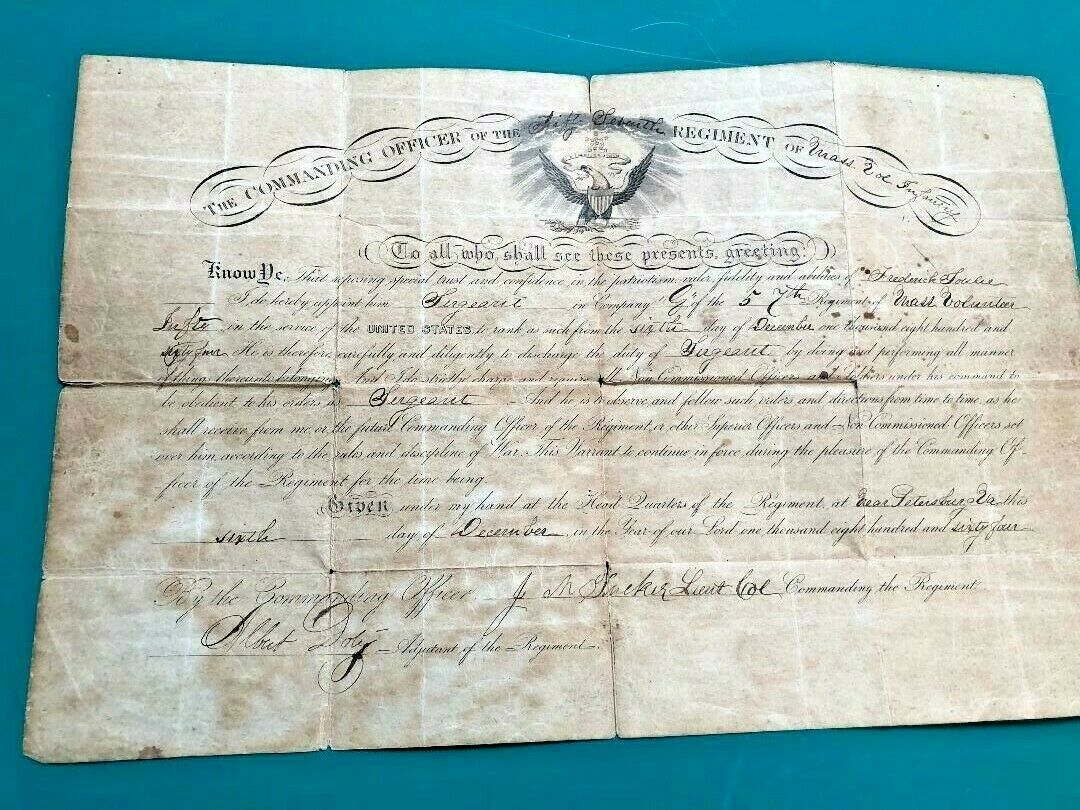 THE COMMANDING OFFICER OF THE Fifty Seventh REGIMENT OF Mass Vol Infantry
To all who shall see these presents, greeting:
Know Ye, That reposing special trust and confidence in the patriotism, valor, fidelity and abilities of Frederick
I do hereby appoint him Sergeant in Company "G" of the 57th Regiment of Mass Volunteer
in the service of the UNITED STATES to rank as such from the sixth day of December one thousand eight hundred and
sixty four He is therefore carefully and diligently to discharge the duty of Sergeant by doing and performing all manner
of thing thereunto belonging And I do strictly charge and require all Non Commissioned Officers and Soldiers under his command to
be obedient to his orders as Sergeant And he is to observe and follow such orders and directions from time to time, as he
shall receive from me, or the future Commanding Officer of the Regiment, or other Superior Officers and Non Commissioned Officers set
over him, according to the rules and discipline of War. This Warrant to continue in force during the pleasure of the Commanding Of-
ficer of the Regiment for the time being.
Given under my hand at the Head Quarters of the Regiment, at near Petersburg Va this
sixth day of December in the Year of our Lord one thousand eight hundred and sixty four
By the Commanding Officer, J M Tucker Lieut Col Commanding the Regiment
Albert Doty Adjutant of the Regiment.